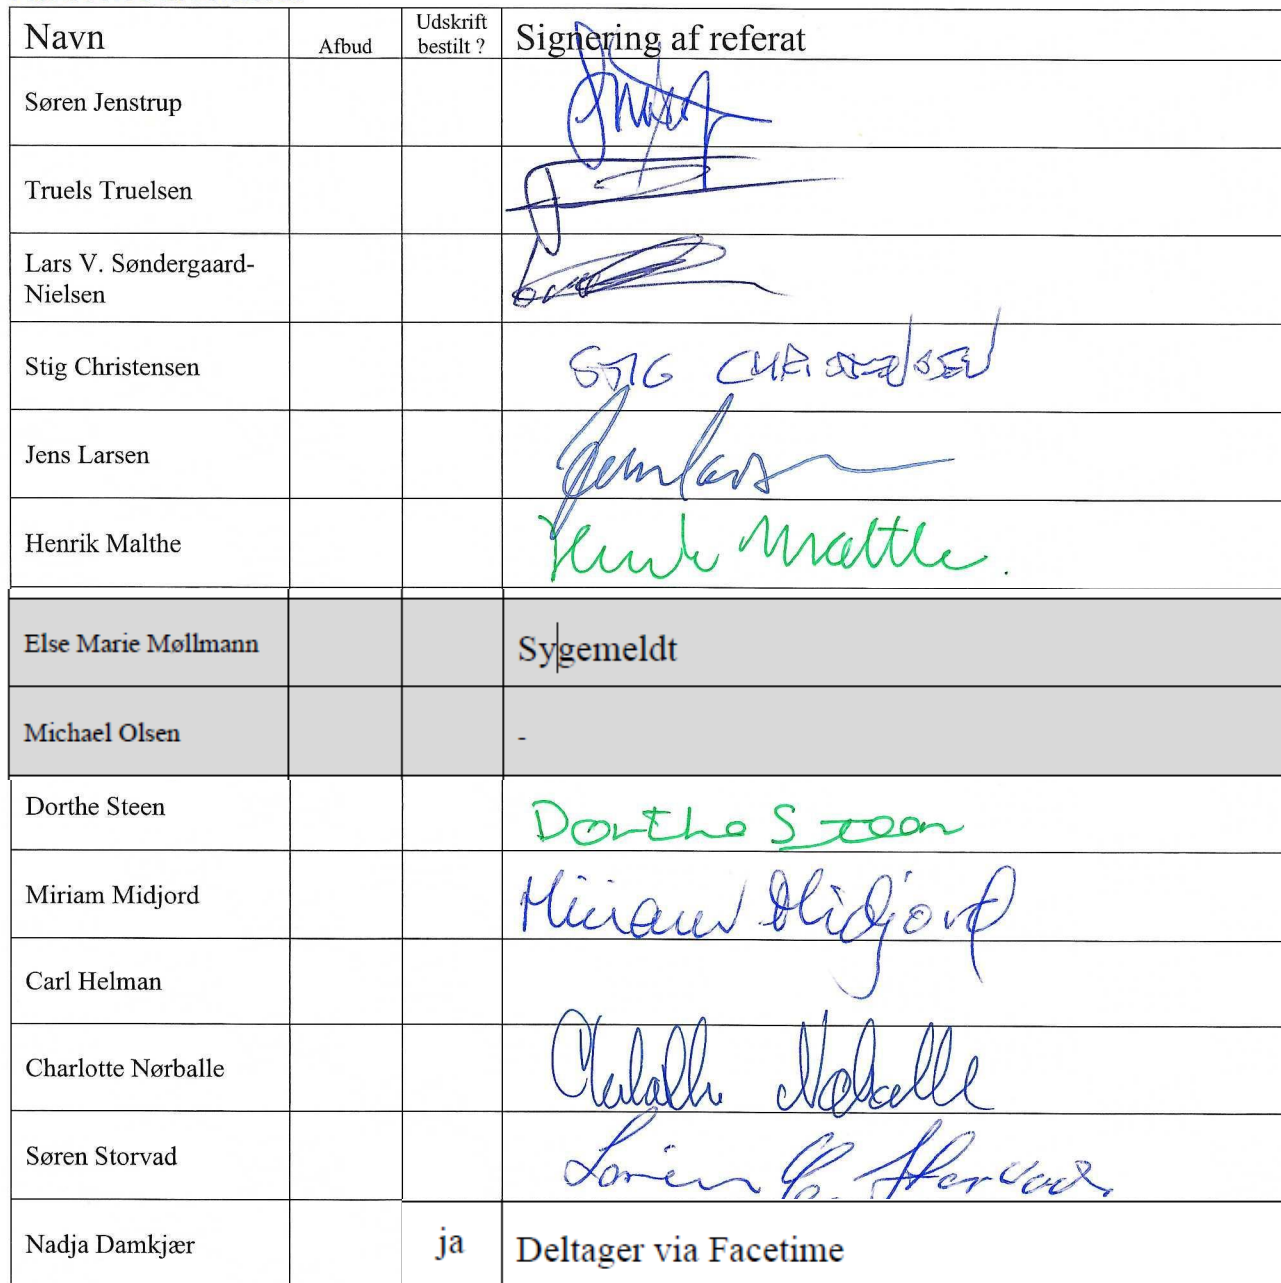 Navn Afbud Udskrift bestilt ? Signering af referat
Søren Jenstrup
Truels Truelsen
Lars V. Søndergaard-
Nielsen
Stig Christensen STIG CHRISTENSEN
Jens Larsen Jens Larsen
Henrik Malthe Henrik Malthe.
Else Marie Møllmann Sygemeldt
Michael Olsen -
Dorthe Steen Dorthe Steen
Miriam Midjord Miriam Midjord
Carl Helman
Charlotte Nørballe Charlotte Nørballe
Søren Storvad Søren
Nadja Damkjær ja Deltager via Facetime